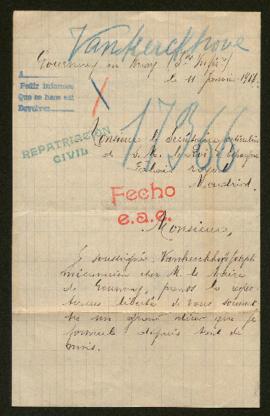 Vankerckhove
Gournay en Bray (Sne Infre)
le 11 Janvier 1918
A
Pedir informes
Que se hace así
Devolver
17366
REPATRIACIÓN
CIVIL
Monsieur le Secrétaire particulier
de S. M. le Roi d'Espagne
Palais Royal
Madrid.
Fecho
e.a.c.
Monsieur,
Je soussigné, Vankerckhove Joseph
mécanicien chez M. le Maire
de Gournay, prends la respec-
tueuse liberté de vous soumet-
tre un ardent désir que je
formule depuis tant de
mois.